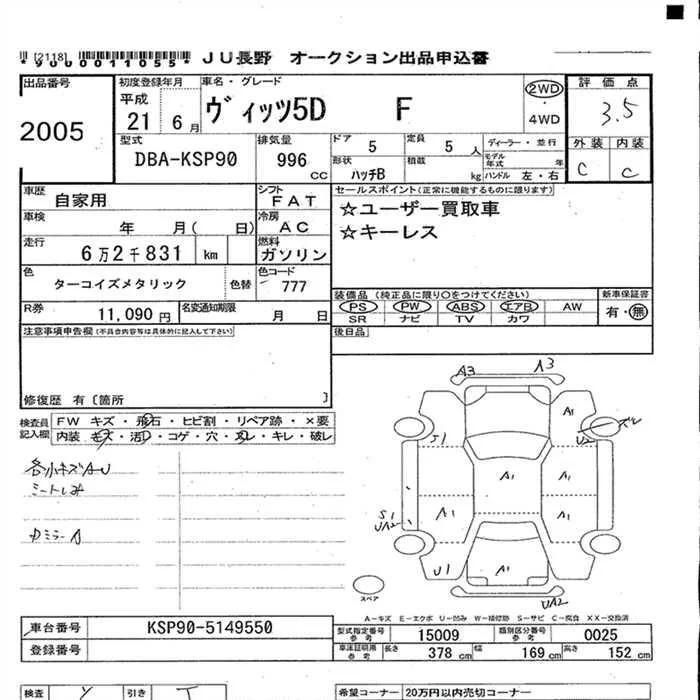 [2118]
*9000011055* JU長野 オークション出品申込書
出品番号 2005
初度登録年月 平成 21 6月
車名・グレード ヴィッツ5D F
2WD・4WD
評価点 3.5
外装 C 内装 C
型式 DBA-KSP90
排気量 996 CC
ドア 5 定員 5人
形状 ハッチB 積載 kg
ディーラー・並行
モデル年式 年
ハンドル 左・右
車歴 自家用
シフト FAT
車検 年 月( 日)
冷房 AC
走行 6万2千831 km
燃料 ガソリン
色 ターコイズメタリック 色替
色コード 777
R券 11,090円
名変通知期限 月 日
セールスポイント(正常に機能するものに限ります)
☆ユーザー買取車
☆キーレス
装備品(純正品に限り○をつけてください)
PS PW ABS エアB AW
SR ナビ TV カワ
新車保証書 有・無
後日品
注意事項申告欄(不具合内容等は具体的に記入して下さい)
修復歴 有〔箇所 〕
検査員記入欄
FW キズ・飛石・ヒビ割・リペア跡・×要
内装・キズ・汚レ・コゲ・穴・スレ・キレ・破レ
各小キズAU
シートしみ
カミラーA
A3 A3
A1
U2 ズレ
S1
A1 A1
S1
UA2
A1 A1
U1 A1
UA2
スペア
A-キズ E-エクボ U-凹み W-補修跡 S-サビ C-腐食 XX-交換済
車台番号 KSP90-5149550
登録番号
型式指定番号参考 15009 類別区分番号参考 0025
車庫証明用参考 長さ 378 cm 幅 169 cm 高さ 152 cm
検査 Y 引き T
希望コーナー 20万円以内売切コーナー